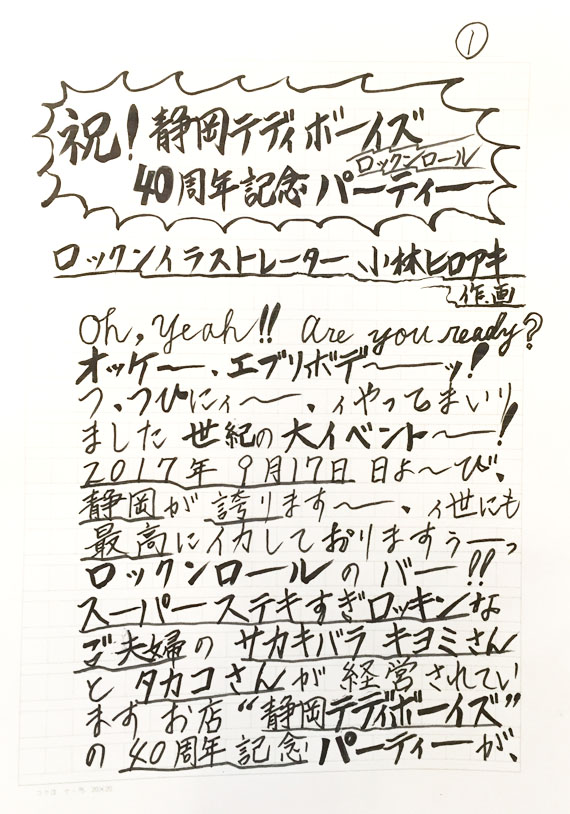 ①
祝!静岡テディボーイズ
ロックンロール
40周年記念パーティー
ロックンイラストレーター、小林ヒロアキ
作画
Oh, Yeah!! Are you ready?
オッケー〜、エブリィボデ〜〜ッ!
つ、ついにィ〜〜、ィやってまいり
ました 世紀の大イベント〜〜!
2017年 9月17日 日よ〜び、
静岡が誇ります〜〜、ィ世にも
最高にイカしておりますぅーっ
ロックンロールのバー!!
スーパーステキすぎロッキンな
ご夫婦の サカキバラ キヨミさん
と タカコさんが経営されてい
ます お店“静岡テディボーイズ”
の 40周年記念 パーティーが、